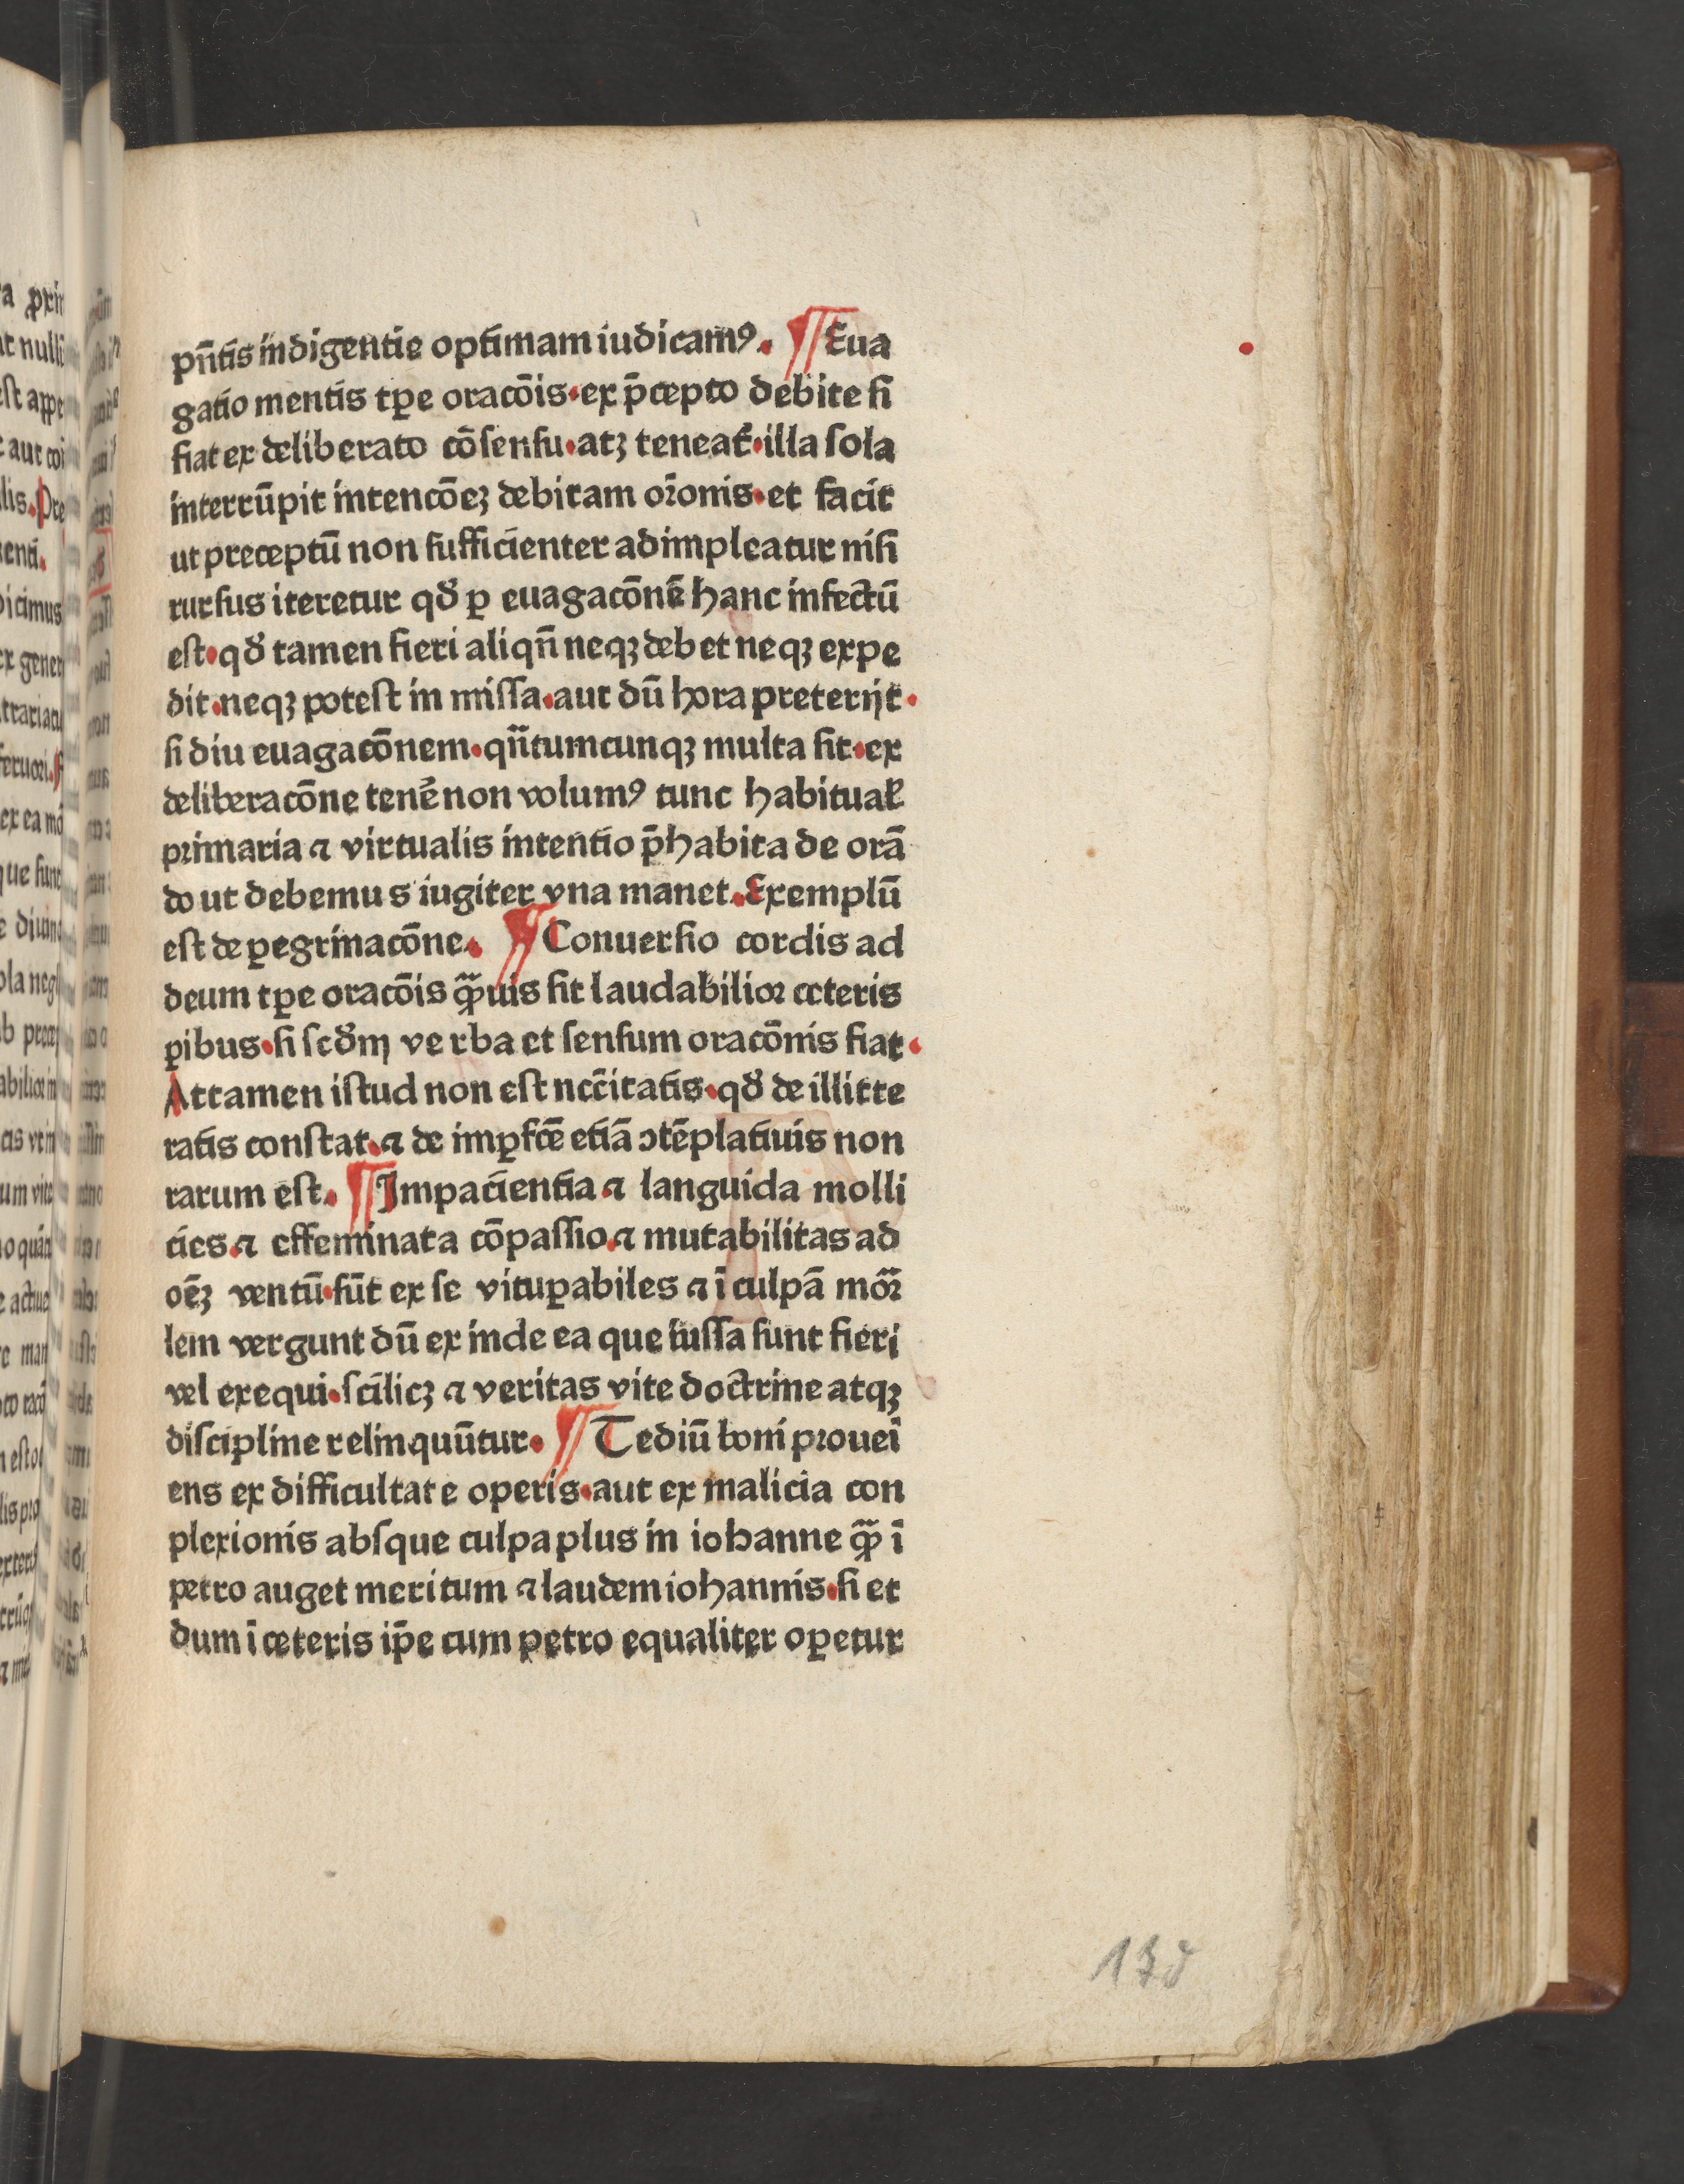 pn̄tis indigentie optimam iudicamꝰ. ¶ Eua
gatio mentis tꝑe oracōis·ex p̄cepto debite ſi
fiat ex deliberato cōſenſu·atꝫ teneat᷑·illa ſola
interrūpit intencōeꝫ debitam or̄onis·et facit
ut preceptū non ſufficienter adimpleatur niſi
rurſus iteretur qd̛ ꝑ euagacōnē hanc infectū
eſt·qd̛ tamen fieri aliqn̄ neqꝫ debet neqꝫ expe
dit·neqꝫ poteſt in miſſa·aut dū hora preterijt·
ſi diu euagacōnem·qn̄tumcunqꝫ multa ſit·ex
deliberacōne tenē non volumꝰ tunc habitual̄
primaria ⁊ virtualis intentio p̄habita de orā
do ut debemus iugiter vna manet. Exemplū
eſt de ꝑegrinacōne. ¶ Conuerſio cordis ad
deum tꝑe oracōis qͣ̄uis ſit laudabilior ceteris
ꝑibus·ſi ſcd̛m verba et ſenſum oracōnis fiat·
Attamen iſtud non eſt ncc̄itatis·qd̛ de illitte
ratis conſtat.⁊ de imꝑfcē etiā ↄtēplatiuis non
rarum eſt. ¶ Impacientia ⁊ languida molli
cies.⁊ effeminata cōpaſſio.⁊ mutabilitas ad
oēꝫ ventū·ſūt ex ſe vituꝑabiles ⁊ ī culpā mor̄
lem vergunt dū ex inde ea que iuſſa ſunt fieri
vel exequi·ſcilicꝫ ⁊ veritas vite doctrine atqꝫ
diſcipline relinquūtur. ¶ Tediū boni prouei
ens ex difficultate operis·aut ex malicia con
plexionis abſque culpa plus in iohanne qͣ̄ ī
petro auget meritum ⁊ laudem iohannis·ſi et
dum ī ceteris ip̄e cum petro equaliter oꝑetur